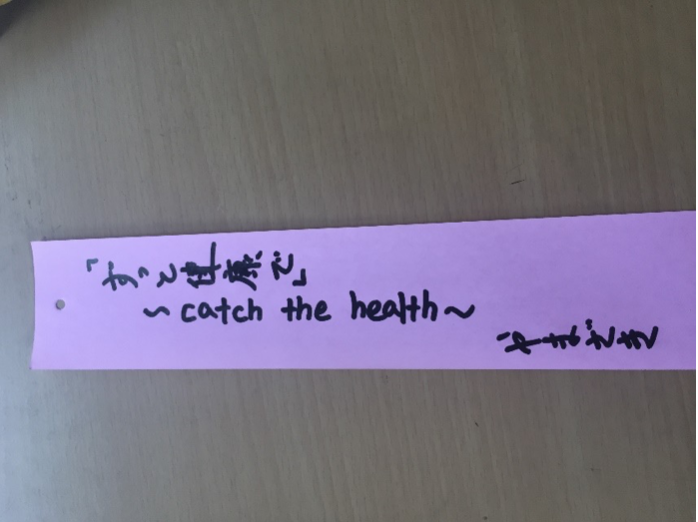 「ずっと健康で」
~catch the health~
やまざき